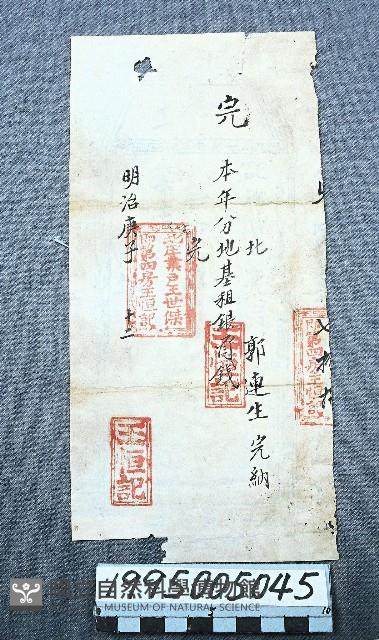 完
北
郭連生完納
本年分地基租銀
完
明治庚子
十二
業戶王世傑
第四房王恒記
王恒記
1995005045
自然科學博物館
MUSEUM OF NATURAL SCIENCE